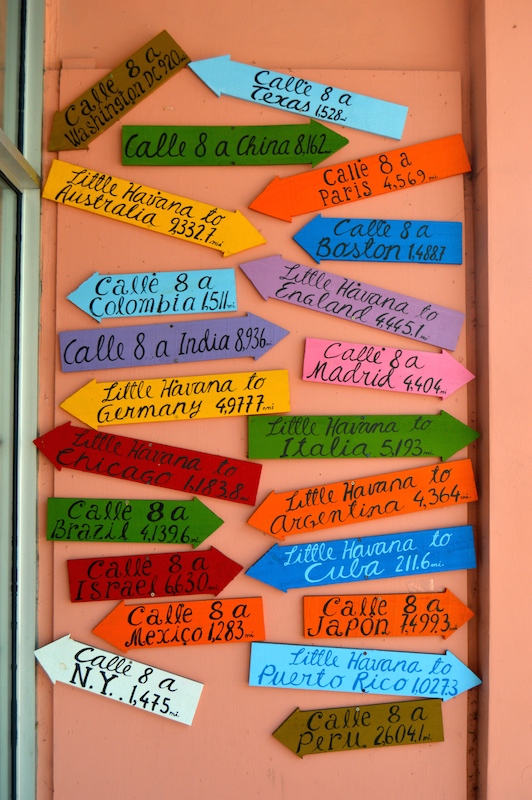 Calle 8 a
Washington DC 920 mi.
Calle 8 a
Texas 1,528 mi.
Calle 8 a China 8,162 mi.
Calle 8 a
Paris 4,569 mi.
Little Havana to
Australia 9332.7 mi.
Calle 8 a
Boston 1,488.7
Little Havana to
England 4,445.1 mi
Calle 8 a
Colombia 1,511 mi.
Calle 8 a India 8,936 mi.
Calle 8 a
Madrid 4,404 mi.
Little Havana to
Germany 4,9777 mi
Little Havana to
Italia 5,193 mi.
Little Havana to
Chicago 1,183.8 mi
Little Havana to
Argentina 4,364 mi.
Calle 8 a
Brazil 4,139.6 mi
Little Havana to
Cuba 211.6 mi
Calle 8 a
Israel 6630 mi
Calle 8 a
Mexico 1,283 mi
Calle 8 a
Japón 7,499.3 mi
Calle 8 a
N.Y. 1,475 mi.
Little Havana to
Puerto Rico 1,027.3
Calle 8 a
Peru 2,604.1 mi